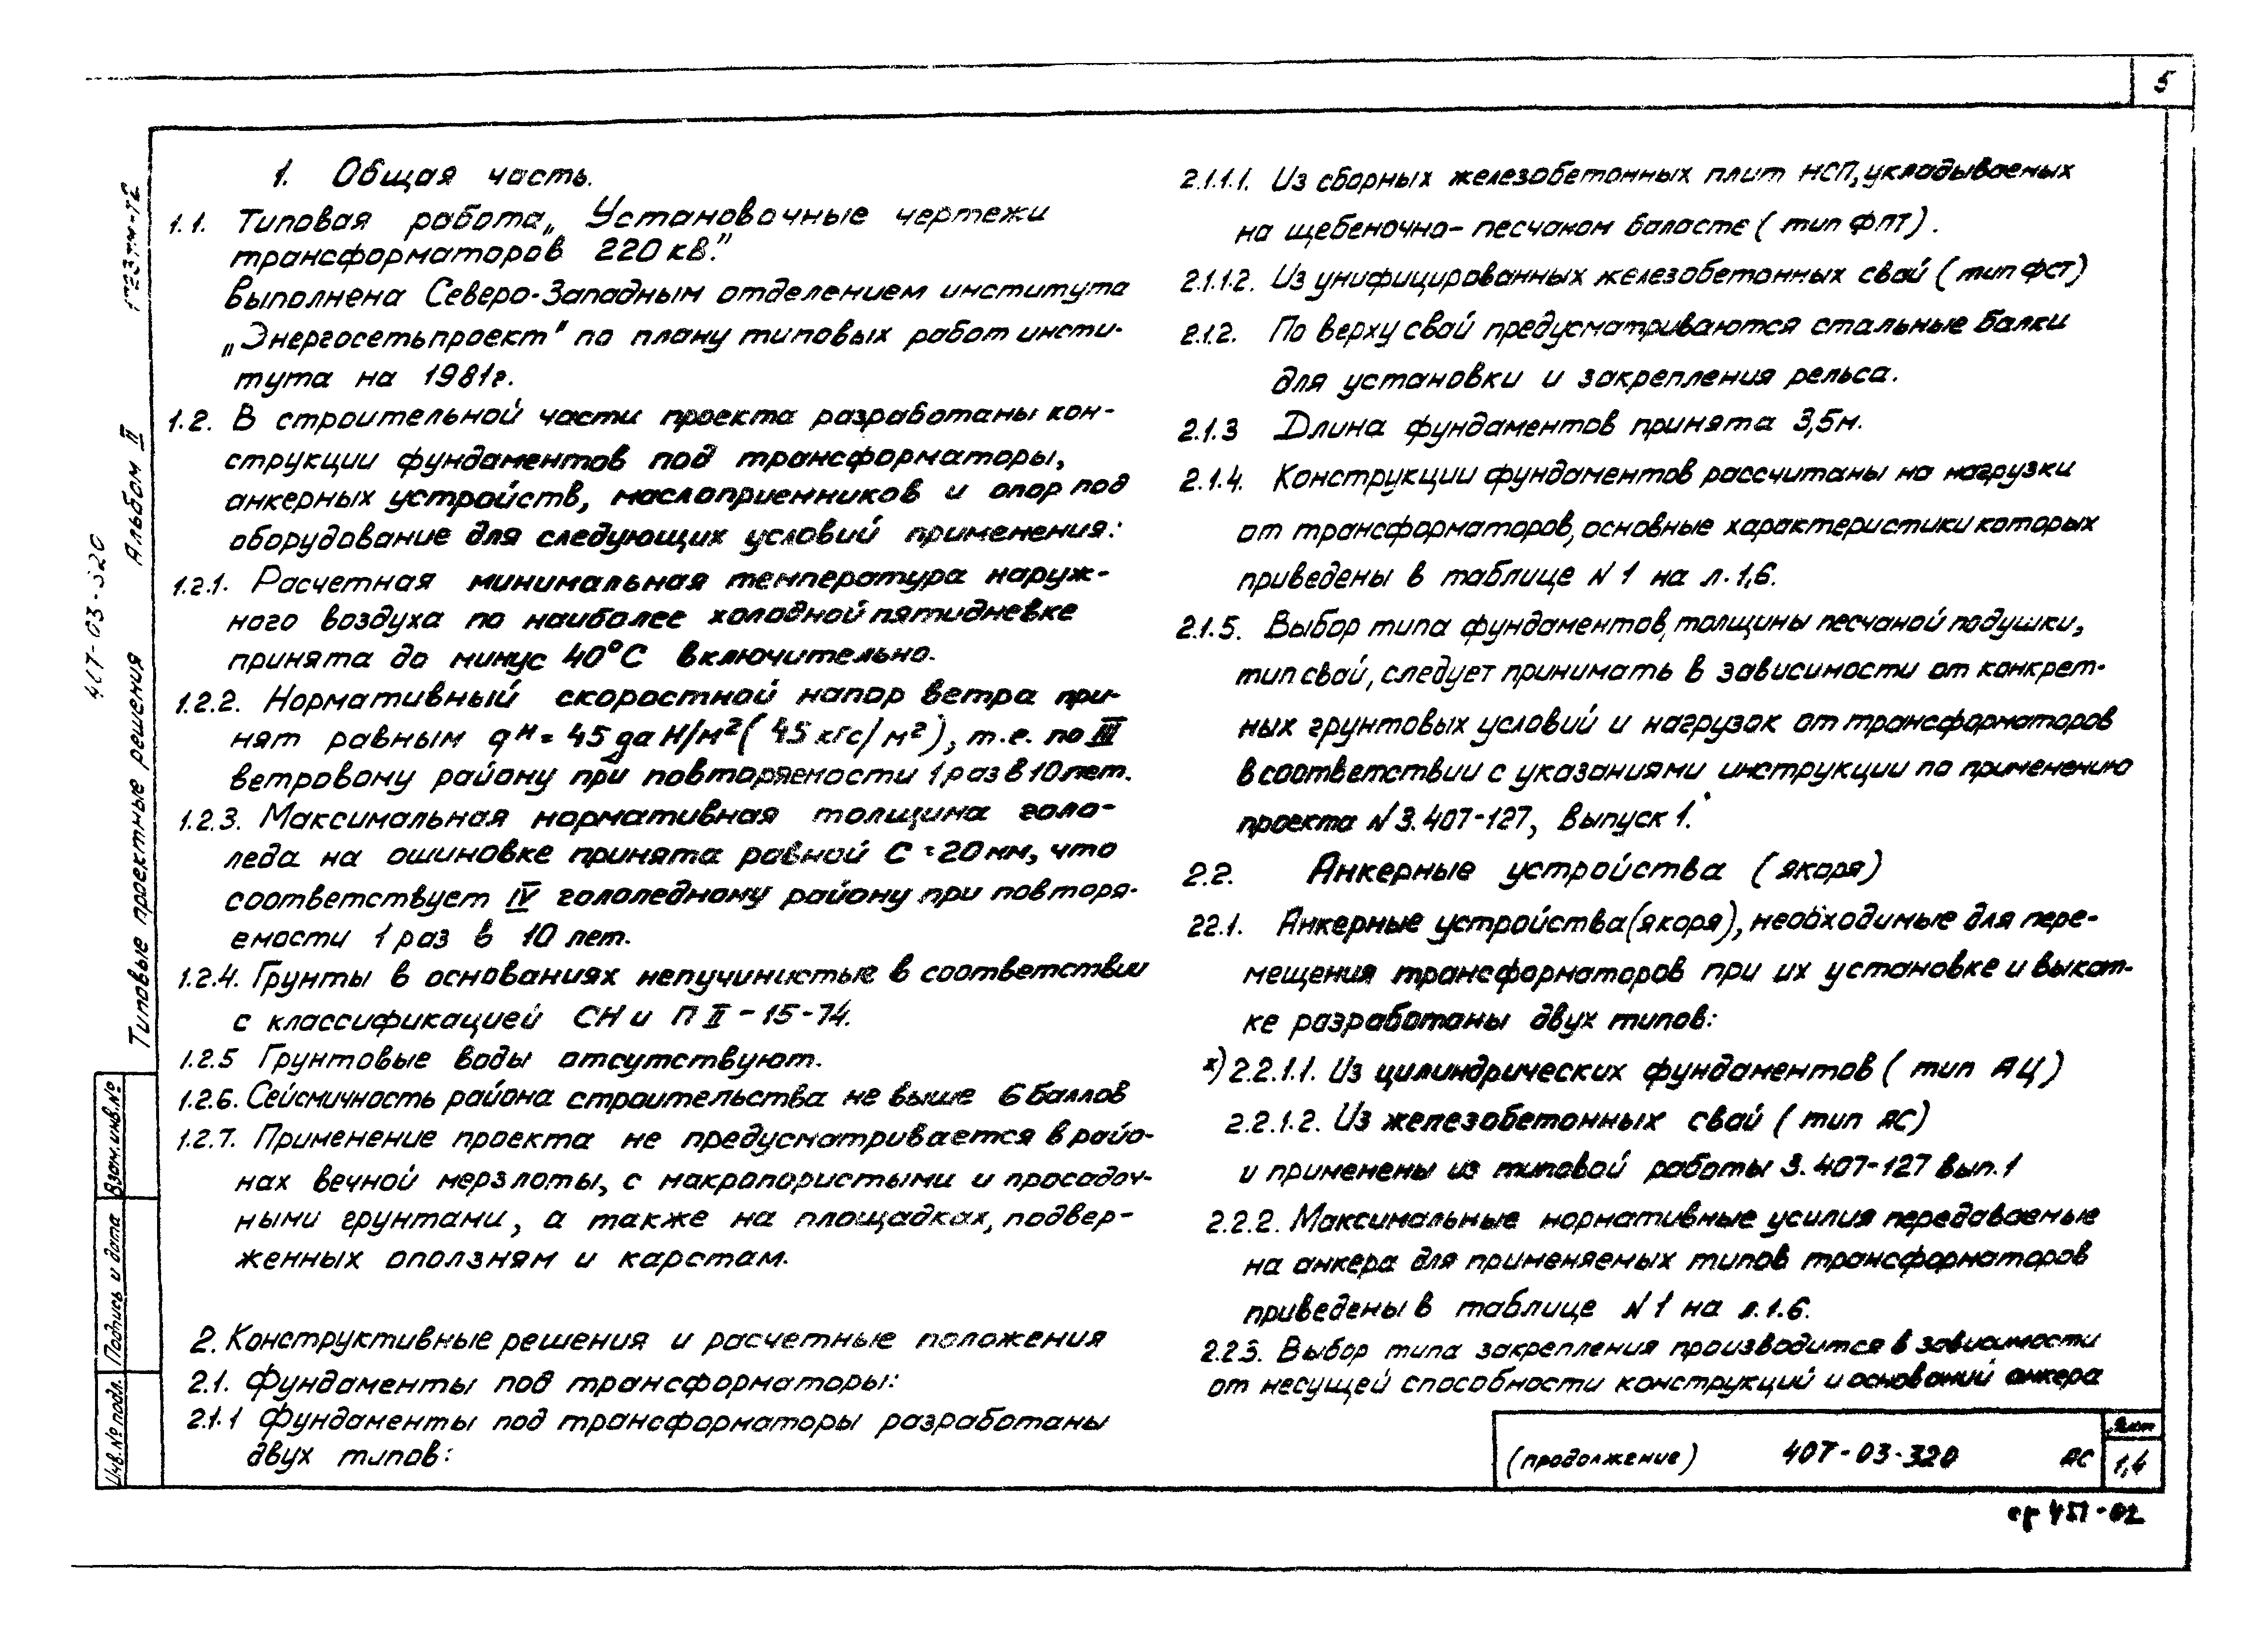 5
1. Общая часть.
1.1. Типовая работа „Установочные чертежи
трансформаторов 220 кв."
выполнена Северо-Западным отделением института
„Энергосетьпроект" по плану типовых работ инсти-
тута на 1981г.
1.2. В строительной части проекта разработаны кон-
струкции фундаментов под трансформаторы,
анкерных устройств, маслоприемников и опор под
оборудование для следующих условий применения:
1.2.1. Расчетная минимальная температура наруж-
ного воздуха по наиболее холодной пятидневке
принята до минус 40°С включительно.
1.2.2. Нормативный скоростной напор ветра при-
нят равным qн = 45 да Н/м² (45 кгс/м²), т.е. по III
ветровому району при повторяемости 1 раз в 10 лет.
1.2.3. Максимальная нормативная толщина голо-
леда на ошиновке принята равной С = 20 мм, что
соответствует IV гололедному району при повторя-
емости 1 раз в 10 лет.
1.2.4. Грунты в основаниях непучинистые в соответствии
с классификацией СН и П II - 15-74.
1.2.5 Грунтовые воды отсутствуют.
1.2.6. Сейсмичность района строительства не выше 6 баллов
1.2.7. Применение проекта не предусматривается в райо-
нах вечной мерзлоты, с макропористыми и просадоч-
ными грунтами, а также на площадках, подвер-
женных оползням и карстам.
2. Конструктивные решения и расчетные положения
2.1. Фундаменты под трансформаторы:
2.1.1 Фундаменты под трансформаторы разработаны
двух типов:
2.1.1.1. Из сборных железобетонных плит НСП, укладываемых
на щебеночно-песчаном баласте (тип ФПТ).
2.1.1.2. Из унифицированных железобетонных свай (тип ФСТ)
2.1.2. По верху свай предусматриваются стальные балки
для установки и закрепления рельса.
2.1.3 Длина фундаментов принята 3,5м.
2.1.4. Конструкции фундаментов рассчитаны на нагрузки
от трансформаторов, основные характеристики которых
приведены в таблице N 1 на л. 1,6.
2.1.5. Выбор типа фундаментов, толщины песчаной подушки,
тип свай, следует принимать в зависимости от конкрет-
ных грунтовых условий и нагрузок от трансформаторов
в соответствии с указаниями инструкции по применению
проекта N 3.407-127, выпуск 1.
2.2. Анкерные устройства (якоря)
22.1. Анкерные устройства (якоря), необходимые для пере-
мещения трансформаторов при их установке и выкат-
ке разработаны двух типов:
х) 2.2.1.1. Из цилиндрических фундаментов (тип АЦ)
2.2.1.2. Из железобетонных свай (тип АС)
и применены из типовой работы 3.407-127 вып.1
2.2.2. Максимальные нормативные усилия передаваемые
на анкера для применяемых типов трансформаторов
приведены в таблице N 1 на л. 1.6.
2.2.3. Выбор типа закрепления производится в зависимости
от несущей способности конструкций и оснований анкера
(продолжение) 407-03-320 АС
Лист
1,4
407-03-320
Типовые проектные решения Альбом II
Взам.инв.№
Подпись и дата
Инв.№ подл.